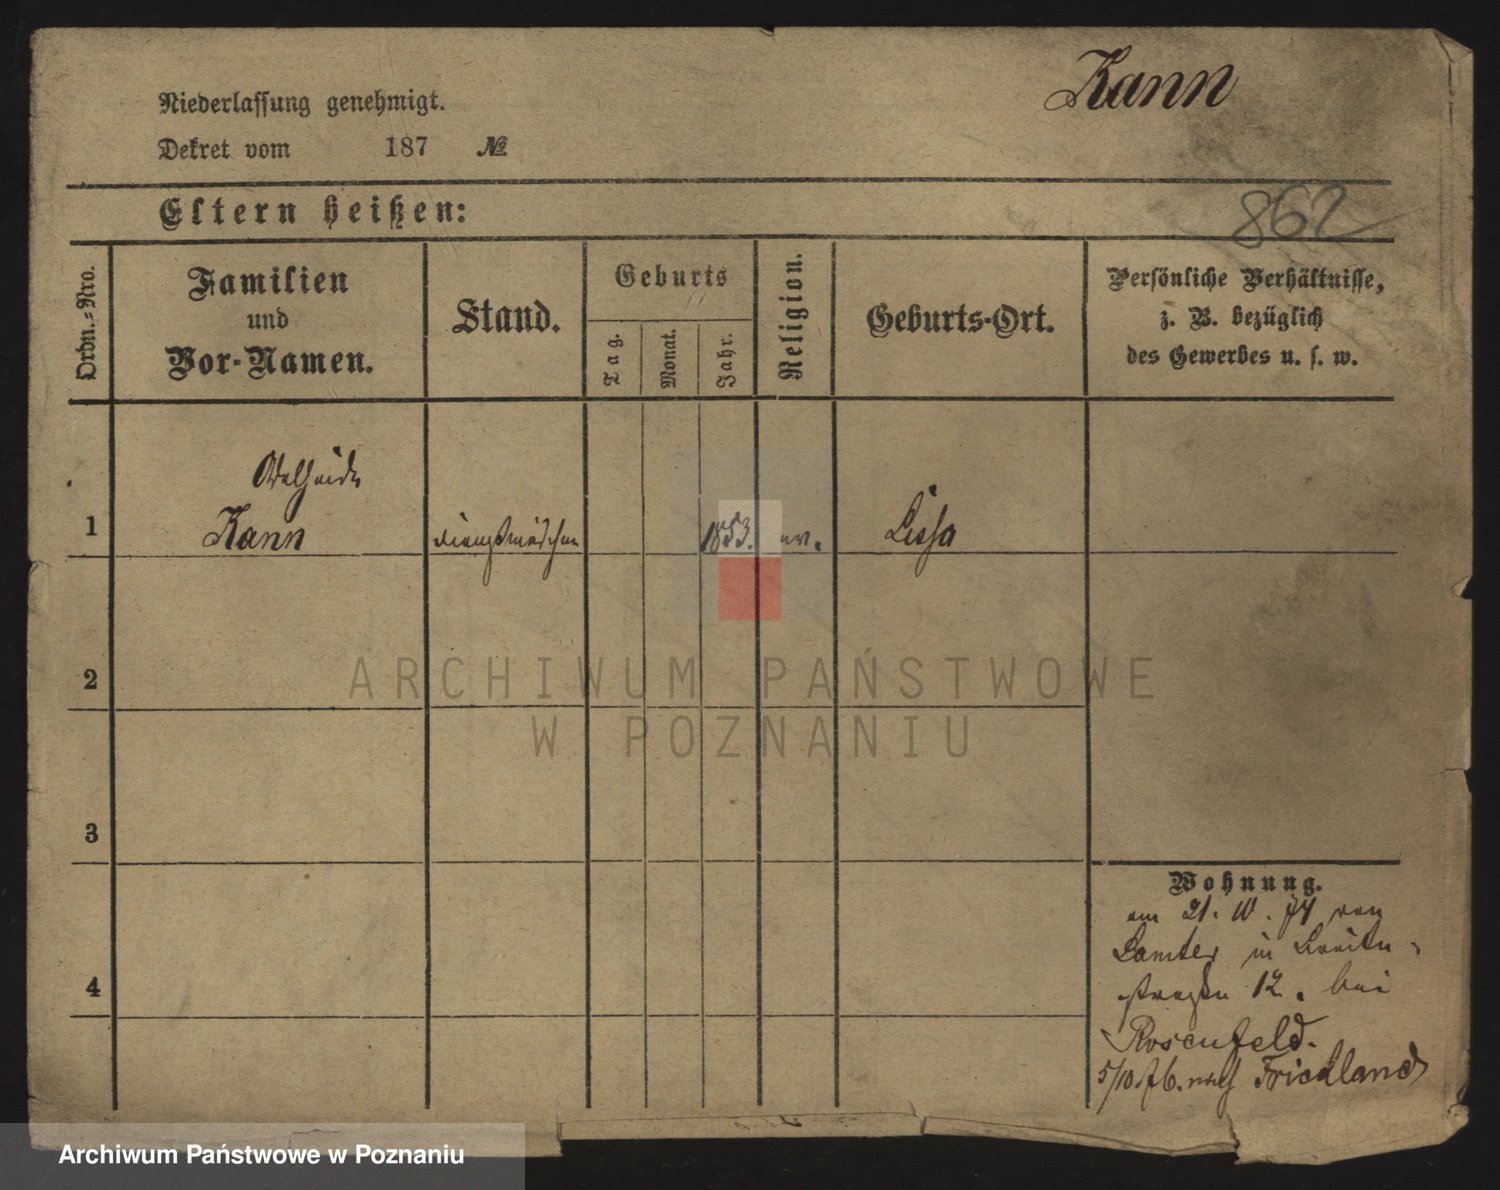 Kann
Niederlassung genehmigt.
Dekret vom 187 №
862
Eltern heißen:
Ordn.-Nro.
Familien
und
Vor-Namen.
Stand.
Geburts
Tag.
Monat.
Jahr.
Religion.
Geburts-Ort.
Persönliche Verhältnisse,
z. B. bezüglich
des Gewerbes u. s. w.
Adelheide
1 Kann Dienstmädchen 1853. ev. Lissa
2
3
4
Wohnung.
am 21. 10. 74 von
Samter in Breite-
straße 12. bei
Rosenfeld.
5/10.76. nach Friedland
ARCHIWUM PAŃSTWOWE
W POZNANIU
Archiwum Państwowe w Poznaniu